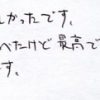 しかったです。
べたけど最高で
す。